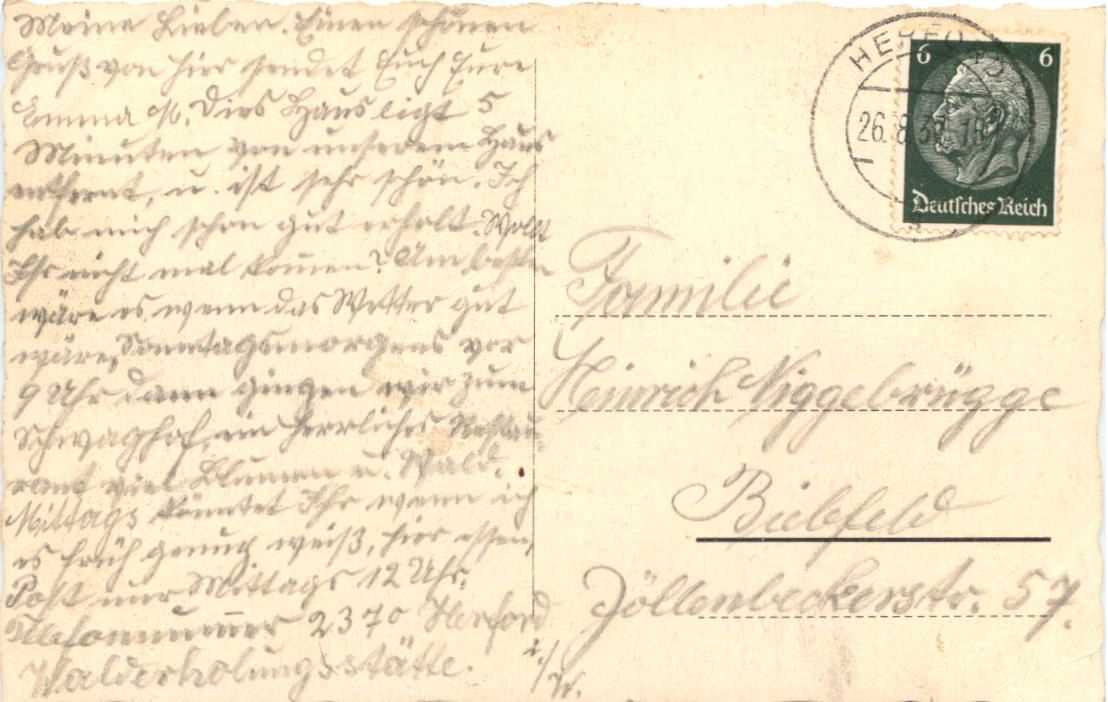 Meine Lieben. Einen schönen
Gruß von hier sendet Euch Eure
Emma M. Dies Haus ligt 5
Minuten von unserem Haus
entfernt, u. ist sehr schön. Ich
hab mich schon gut erholt. Wollt
Ihr nicht mal kommen? Am besten
wäre es wenn das Wetter gut
wäre, Sonntagsmorgens vor
9 Uhr dann gingen wir zum
Schwaghof, ein herrliches Restau
rant viel Blumen u. Wald.
Mittags könntet Ihr wenn ich
es früh genug weiß, hier essen,
Post nur Mittags 12 Uhr.
Telefonnummer 2370 Herford
Walderholungsstätte.
i./W.
HERFORD
26.8.3
6 6
Deutsches Reich
Familie
Heinrich Niggebrügge
Bielefeld
Jöllenbeckerstr. 57.